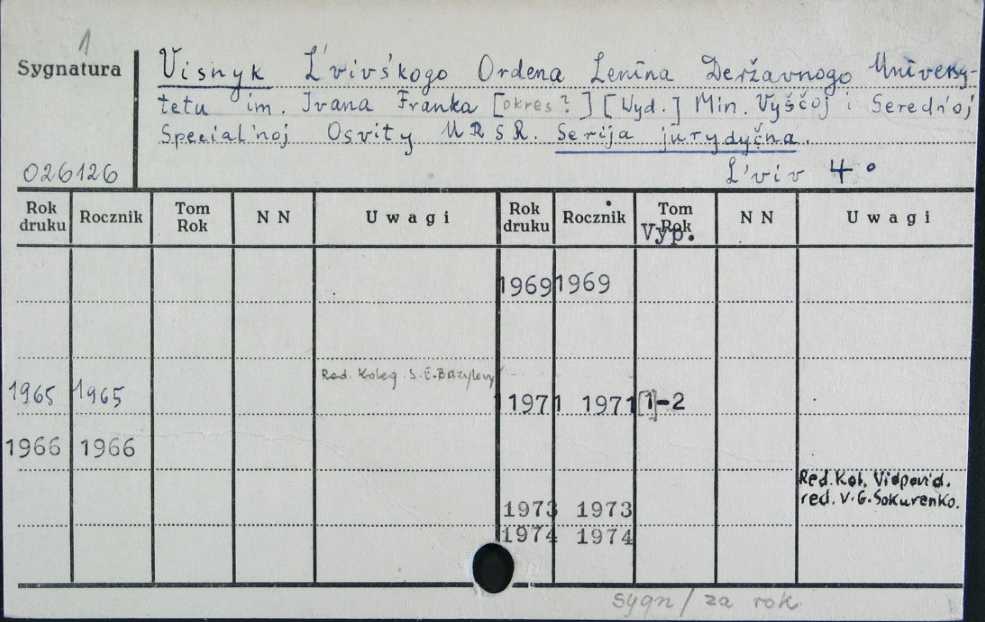 1
Sygnatura
Visnyk L'vivśkogo Ordena Lenina Deržavnogo Universy-
tetu im. Ivana Franka [okres?] [Wyd.] Min. Vyščoj i Seredn'oj
Special'noj Osvity URSR. Serija jurydyčna.
026126
L'viv 4°
Rok druku Rocznik Tom Rok NN Uwagi Rok druku Rocznik Tom Rok NN Uwagi
Vyp.
1969 1969
Red. Koleg. S. E. Bazylevy
1965 1965
1971 1971 [1]-2
1966 1966
Red. Kol. Vidpovid.
red. V. G. Sokurenko.
1973 1973
1974 1974
sygn/za rok